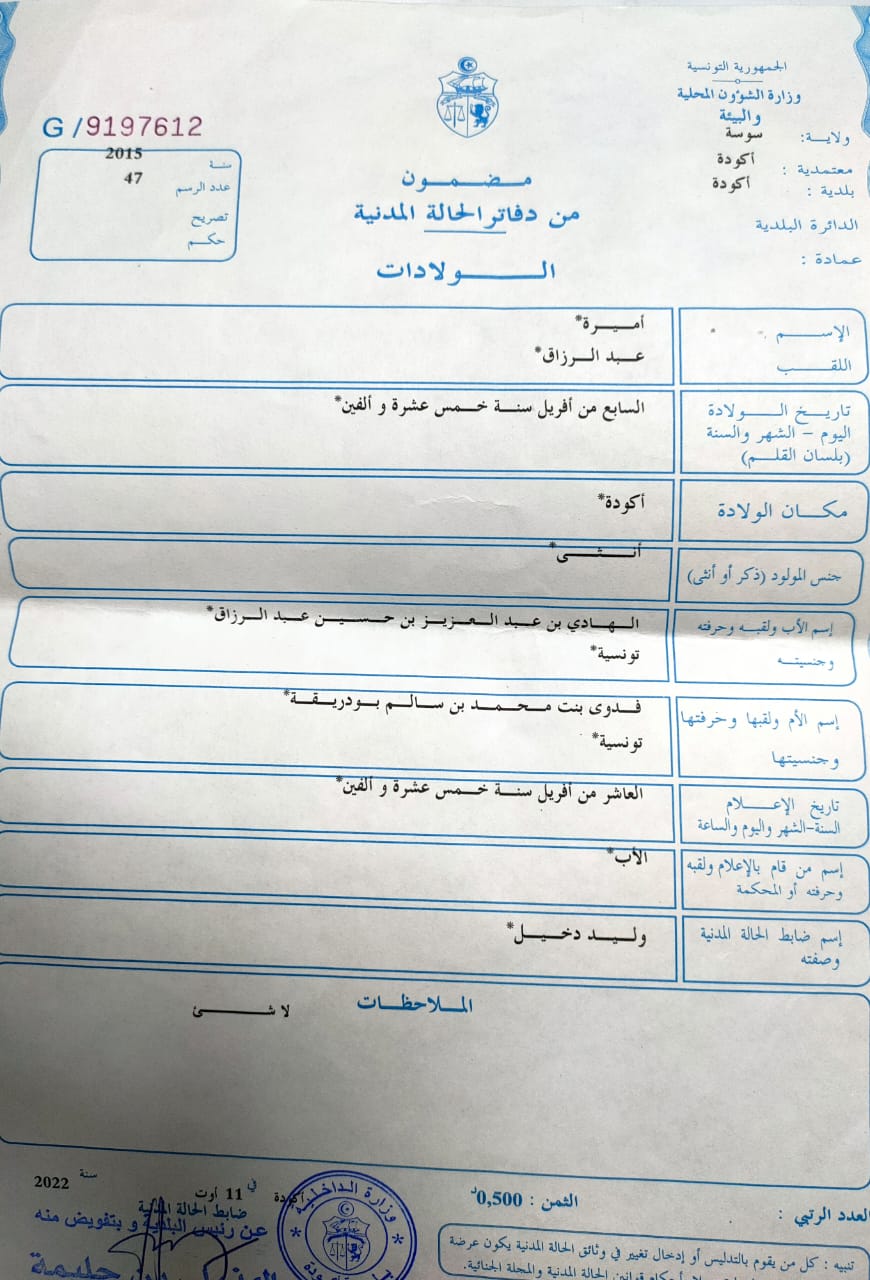 الجمهورية التونسية
وزارة الشؤون المحلية
والبيئة
ولاية: سوسة
معتمدية : أكودة
بلدية : أكودة
الدائرة البلدية
عمادة :
G /9197612
سنة 2015
عدد الرسم 47
تصريح
حكم
مضمون
من دفاتر الحالة المدنية
الولادات
الإسم أميرة*
اللقب عبد الرزاق*
تاريخ الولادة السابع من أفريل سنة خمس عشرة و ألفين*
اليوم - الشهر والسنة
(بلسان القلم)
مكان الولادة أكودة*
جنس المولود (ذكر أو أنثى) أنثى*
إسم الأب ولقبه وحرفته الهادي بن عبد العزيز بن حسين عبد الرزاق*
وجنسيته تونسية*
إسم الأم ولقبها وحرفتها فدوى بنت محمد بن سالم بودريقة*
وجنسيتها تونسية*
تاريخ الإعلام العاشر من أفريل سنة خمس عشرة و ألفين*
السنة-الشهر واليوم والساعة
إسم من قام بالإعلام ولقبه الأب*
وحرفته أو المحكمة
إسم ضابط الحالة المدنية وليد دخيل*
وصفته
الملاحظات
لا شئ
العدد الرتبي :
الثمن : 0,500د
أكودة في 11 أوت سنة 2022
ضابط الحالة المدنية
عن رئيس البلدية و بتفويض منه
وزارة الداخلية
تنبيه : كل من يقوم بالتدليس أو إدخال تغيير في وثائق الحالة المدنية يكون عرضة
قوانين الحالة المدنية والمجلة الجنائية.